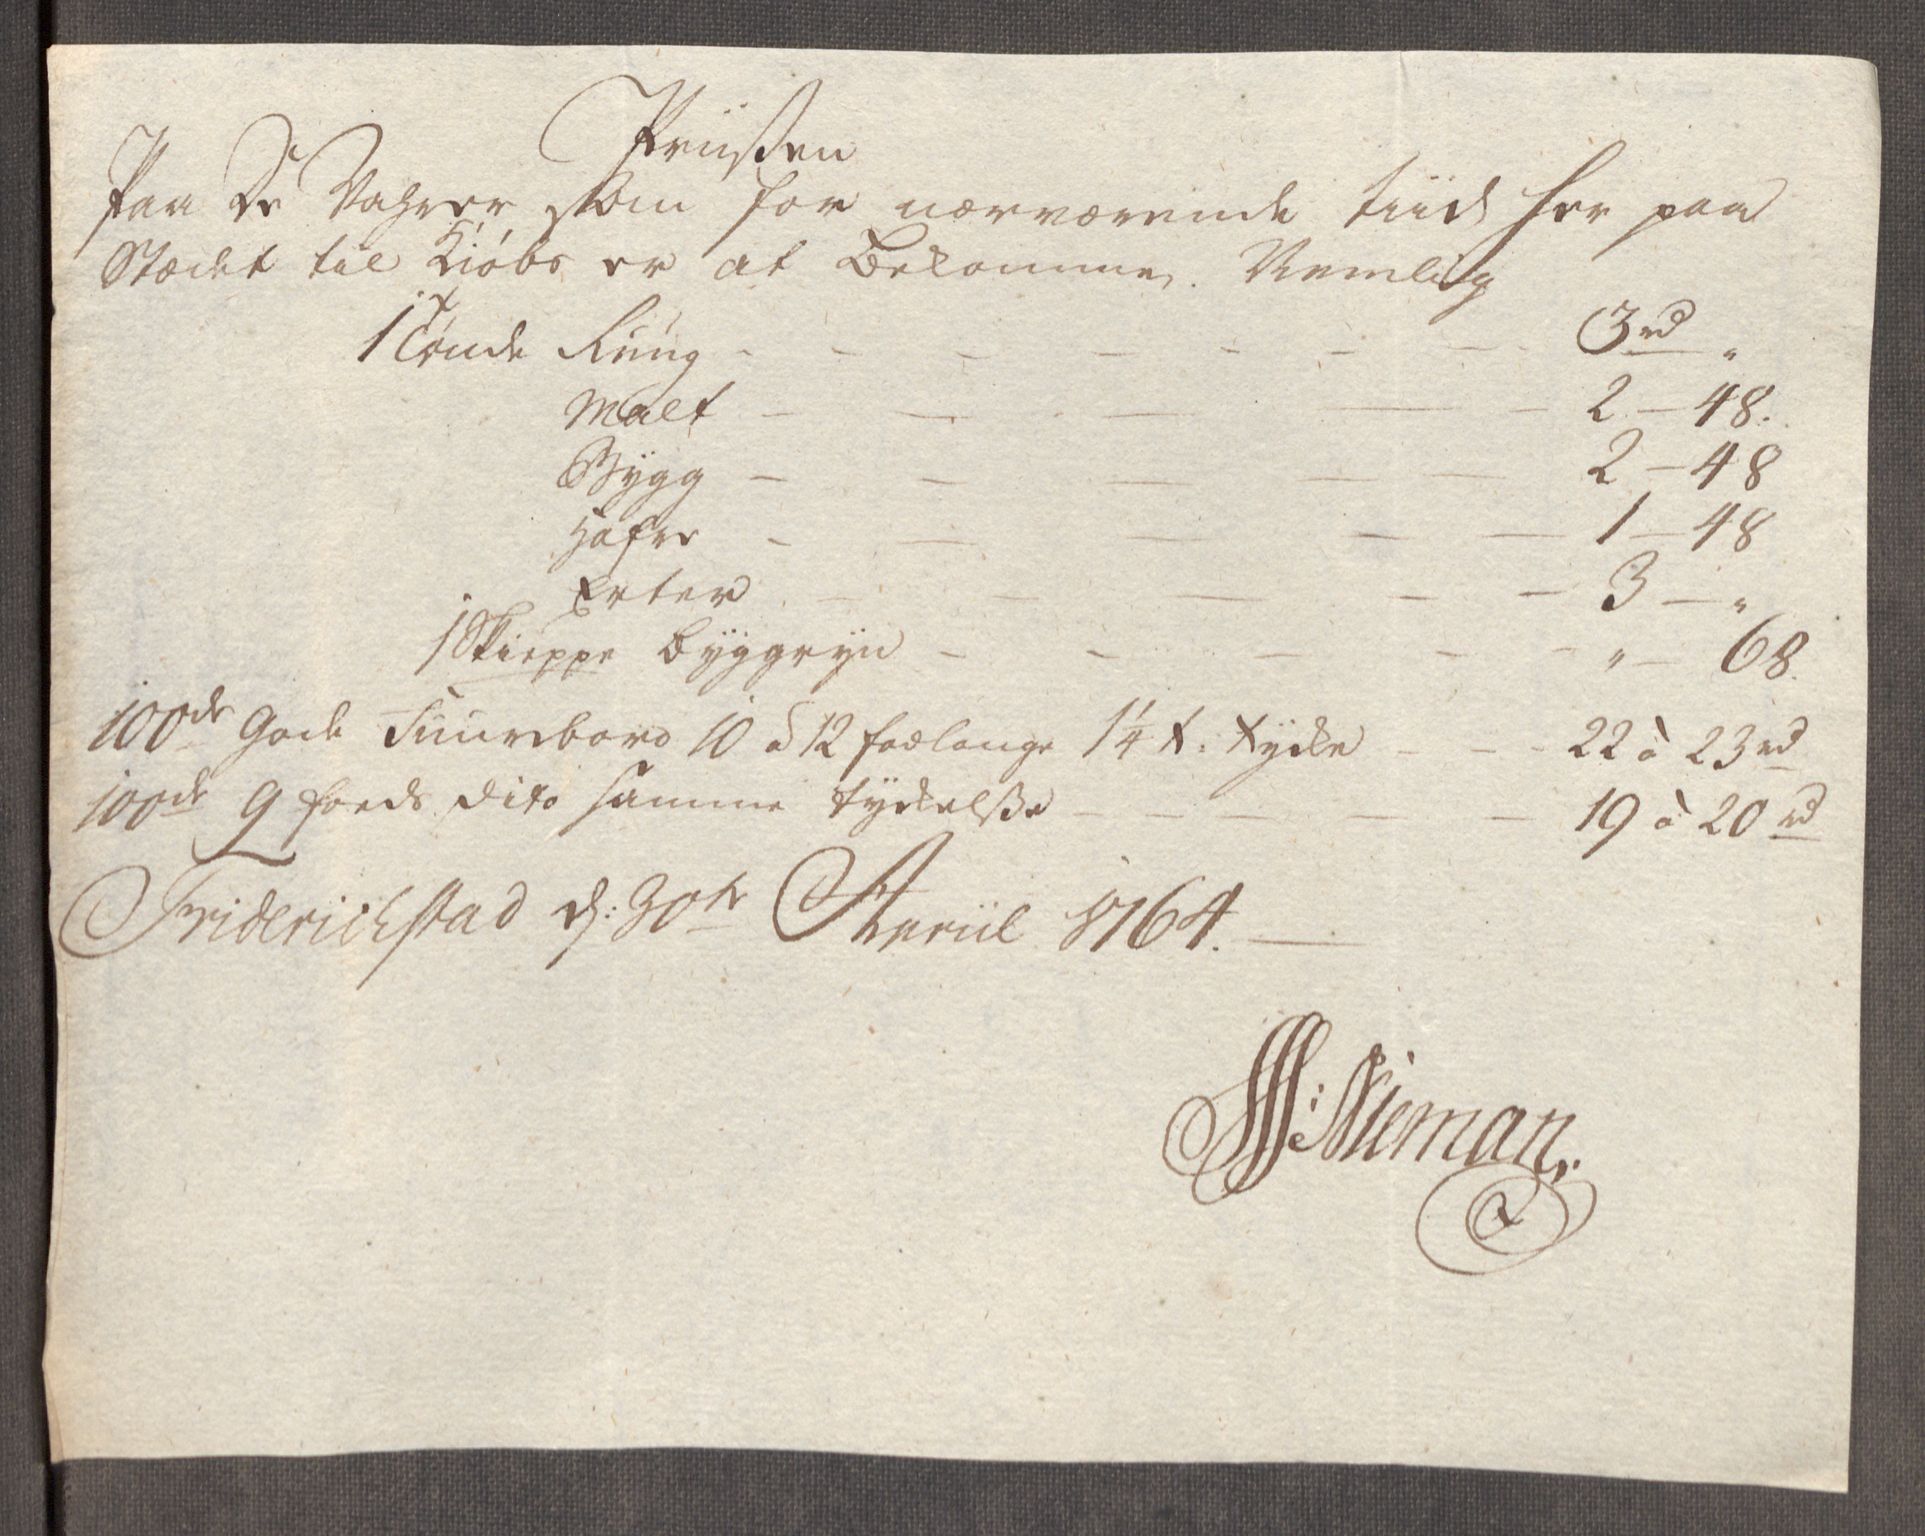 Priisen
Paa De Vahrer som for nærværende tiid her paa
Stædet til Kiøbs er at Bekomme, Nemlig
1 Tønde Rúúg - - - - - - - 3 rd "
Malt - - - - - 2 - 48.
Bygg - - - - - 2 - 48
Hafre - - - - - 1 - 48
Erter - - - - - 3 - "
1 Skieppe Byggryn - - - - - " - 68.
100de Gode Fuurebord 10 a 12 foed lange 1 1/4 t. tycke - - - 22 à 23 rd
100de 9 foeds dito samme tyckelsse - - - - - 19 à 20 rd
Friderichstad d: 30te Apriil 1764. -
Nieman